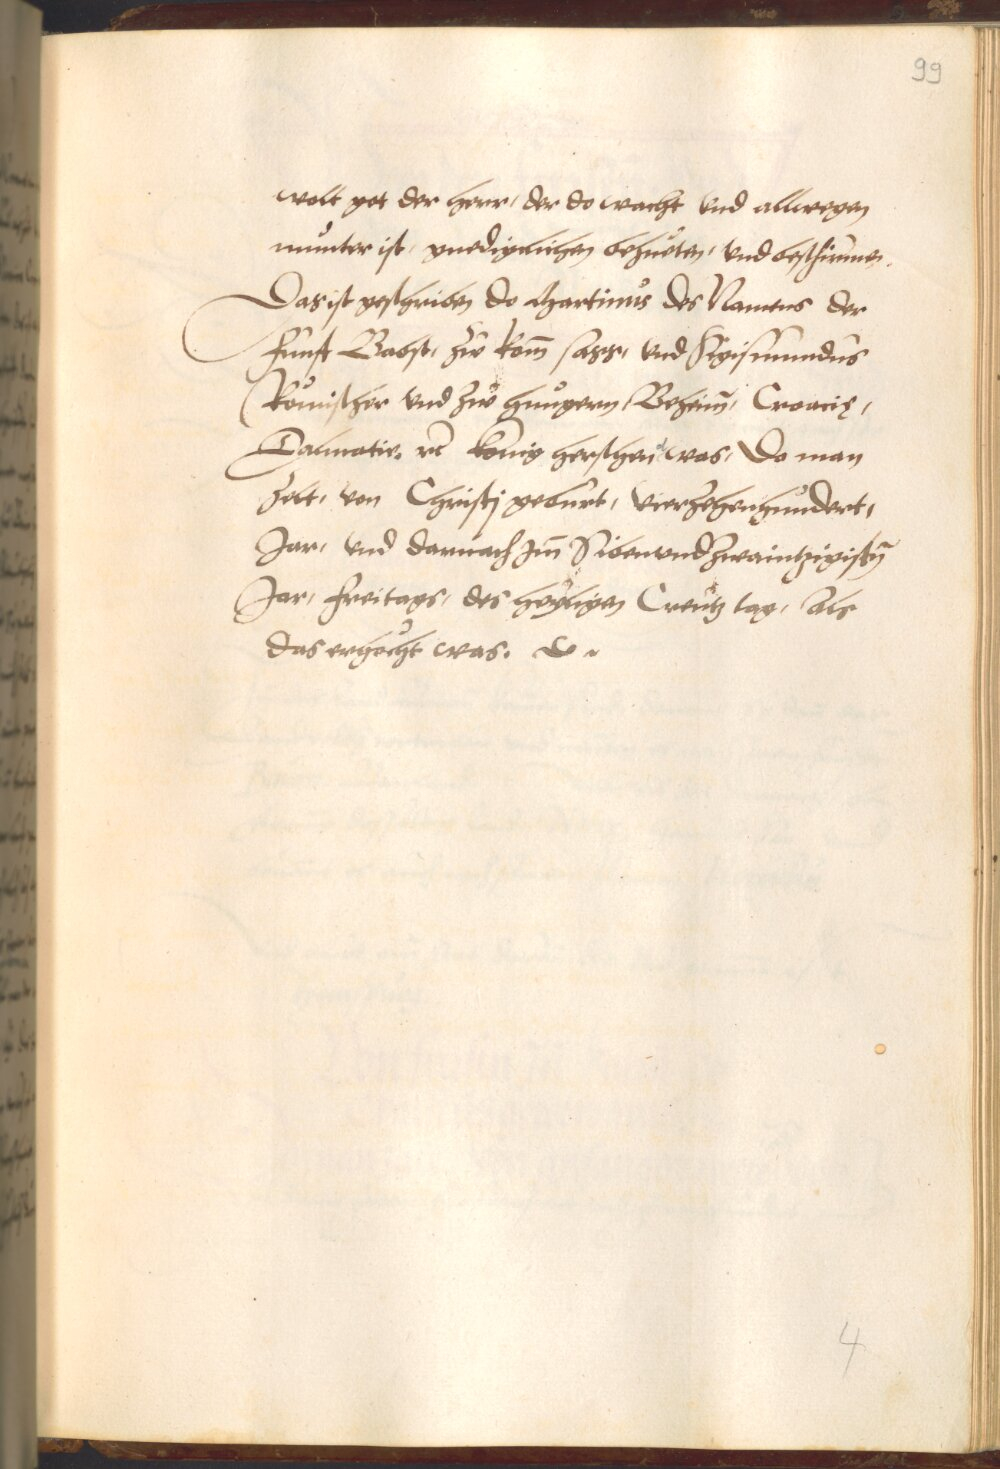 99
wolt got der herr, der do wacht vnd allwegen
munter ist, gnediglichen behueten, vnd beschirmen.
Das ist geschriben do Martinus des Namens der
funft Babst, zw Rom̄ sass, vnd Sigismundus
Römischer vnd zw Hungern, Behaim̄, Croacie,
Dalmatie. rc König herschend was, Do man
zelt, von Christj geburt, vierzehenhundert,
Jar, vnd darnach Im̄ Sibenvndzwaintzigistn̄
Jar, freitags, des heyligen Creutz tag, Als
das erhöcht was.
4